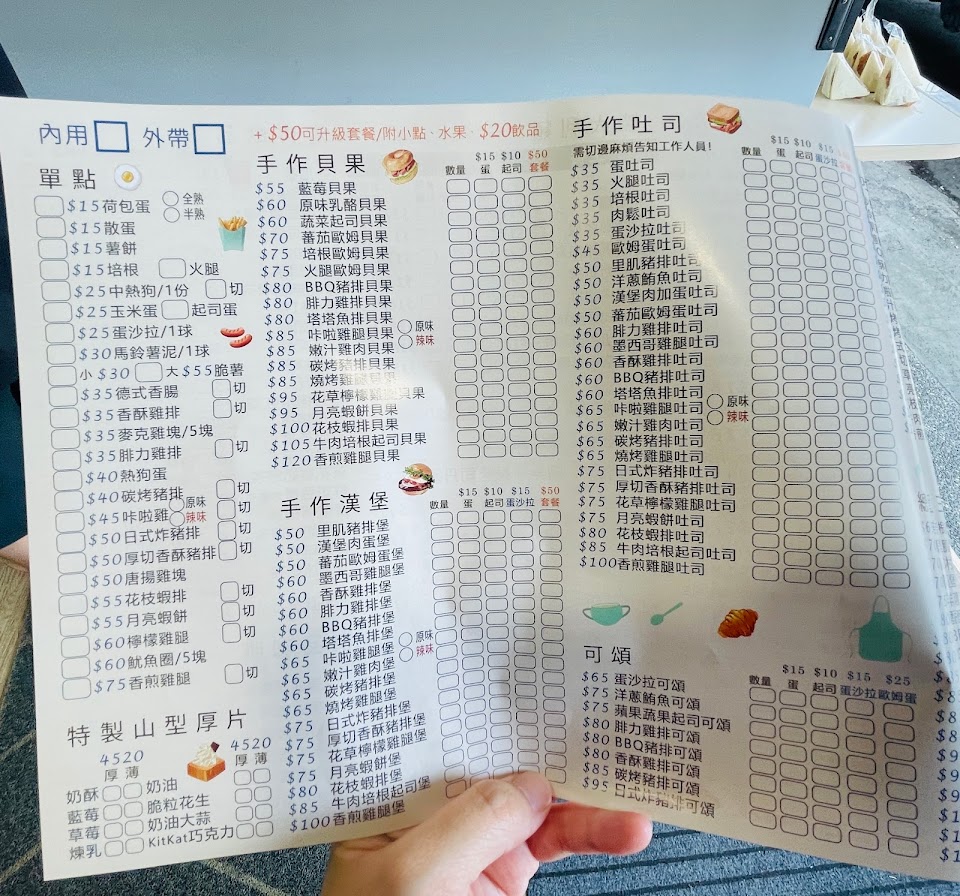 內用 外帶
+ $50可升級套餐/附小點、水果、$20飲品
單點
$15荷包蛋 全熟 半熟
$15散蛋
$15薯餅
$15培根 火腿
$25中熱狗/1份 切
$25玉米蛋 起司蛋
$25蛋沙拉/1球
$30馬鈴薯泥/1球
小 $30 大 $55脆薯
$35德式香腸 切
$35香酥雞排 切
$35麥克雞塊/5塊
$35腓力雞排 切
$40熱狗蛋
$40碳烤豬排 切
$45咔啦雞 原味 辣味 切
$50日式炸豬排 切
$50厚切香酥豬排 切
$50唐揚雞塊
$55花枝排 切
$55月亮蝦餅 切
$60檸檬雞腿 切
$60魷魚圈/5塊
$75香煎雞腿 切
特製山型厚片
45 20 45 20
厚 薄 厚 薄
奶酥 奶油
藍莓 脆粒花生
草莓 奶油大蒜
煉乳 KitKat巧克力
手作貝果
$15 $10 $50
數量 蛋 起司 套餐
$55 藍莓貝果
$60 原味乳酪貝果
$60 蔬菜起司貝果
$70 蕃茄歐姆貝果
$75 培根歐姆貝果
$75 火腿歐姆貝果
$80 BBQ豬排貝果
$80 腓力雞排貝果
$80 塔塔魚排貝果
$85 咔啦雞腿貝果 原味 辣味
$85 嫩汁雞肉貝果
$85 碳烤豬排貝果
$85 燒烤雞腿貝果
$95 花草檸檬雞腿貝果
$95 月亮蝦餅貝果
$100花枝蝦排貝果
$105牛肉培根起司貝果
$120香煎雞腿貝果
手作漢堡
$15 $10 $15 $50
數量 蛋 起司 蛋沙拉 套餐
$50 里肌豬排堡
$50 漢堡肉蛋堡
$50 蕃茄歐姆蛋堡
$60 墨西哥雞腿堡
$60 香酥雞排堡
$60 腓力雞排堡
$60 BBQ豬排堡
$60 塔塔魚排堡
$65 咔啦雞腿堡 原味 辣味
$65 嫩汁雞肉堡
$65 碳烤豬排堡
$65 燒烤雞腿堡
$75 日式炸豬排堡
$75 厚切香酥豬排堡
$75 花草檸檬雞腿堡
$75 月亮蝦餅堡
$80 花枝蝦排堡
$85 牛肉培根起司堡
$100香煎雞腿堡
手作吐司
需切邊麻煩告知工作人員!
$15 $10 $15
數量 蛋 起司 蛋沙拉
$35 蛋吐司
$35 火腿吐司
$35 培根吐司
$35 肉鬆吐司
$35 蛋沙拉吐司
$45 歐姆蛋吐司
$50 里肌豬排吐司
$50 洋蔥鮪魚吐司
$50 漢堡肉加蛋吐司
$50 蕃茄歐姆蛋吐司
$60 腓力雞排吐司
$60 墨西哥雞腿吐司
$60 香酥雞排吐司
$60 BBQ豬排吐司
$60 塔塔魚排吐司
$65 咔啦雞腿吐司 原味 辣味
$65 嫩汁雞肉吐司
$65 碳烤豬排吐司
$65 燒烤雞腿吐司
$75 日式炸豬排吐司
$75 厚切香酥豬排吐司
$75 花草檸檬雞腿吐司
$75 月亮蝦餅吐司
$80 花枝蝦排吐司
$85 牛肉培根起司吐司
$100香煎雞腿吐司
可頌
$15 $10 $15 $25
數量 蛋 起司 蛋沙拉 歐姆蛋
$65 蛋沙拉可頌
$75 洋蔥鮪魚可頌
$75 蘋果蔬果起司可頌
$80 腓力雞排可頌
$80 BBQ豬排可頌
$80 香酥雞排可頌
$85 碳烤豬排可頌
$95 日式炸豬排可頌